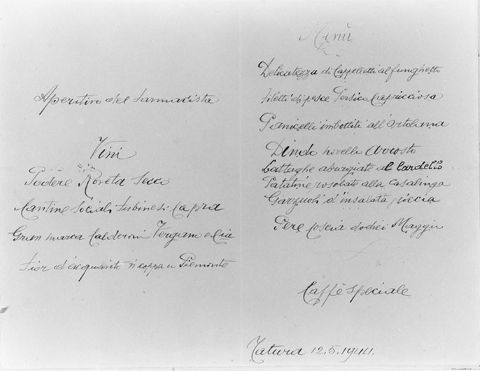 Aperitivo del farmacista
Vini
Podere Roveta Secco
Cantine Sociali Capra
Gran marca Calderoni
Fior d'acquavite Piemonte
Menù
Delicatezza di Cappelletti al funghetto
Filetti di pesce Persico Capricciosa
Panicelli imbottiti all'
Dindo novello Arrosto
Lattughe al Cardello
Patatine rosolate alla Casalinga
Garzuoli d'insalata riccia
Pere coscia dodici Maggio
Caffè Speciale
Tatura 12.5.1944.